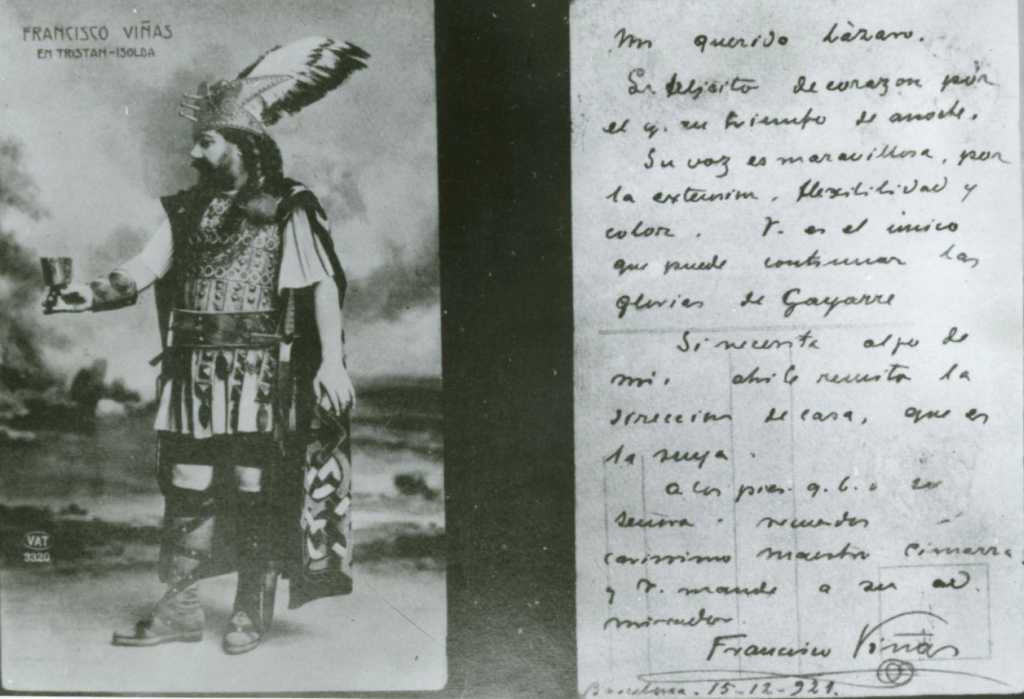 FRANCISCO VIÑAS
EN TRISTAN-ISOLDA
VAT
3320
Mi querido Lázaro.
Le felicito de corazón por
el g. su triumfo de anoche.
Su voz es maravillosa, por
la extension, flexibilidad y
color. V. es el único
que puede continuar las
glorias de Gayarre
Si necesita algo de
mi, ahi le remito la
direccion de casa, que es
la suya.
A los pies. q. b. a su
señora. recuerdos
carissimo maestro Cimarra
y V. mande a su ad
mirador.
Francisco Viñas
Barcelona. 15-12-921.